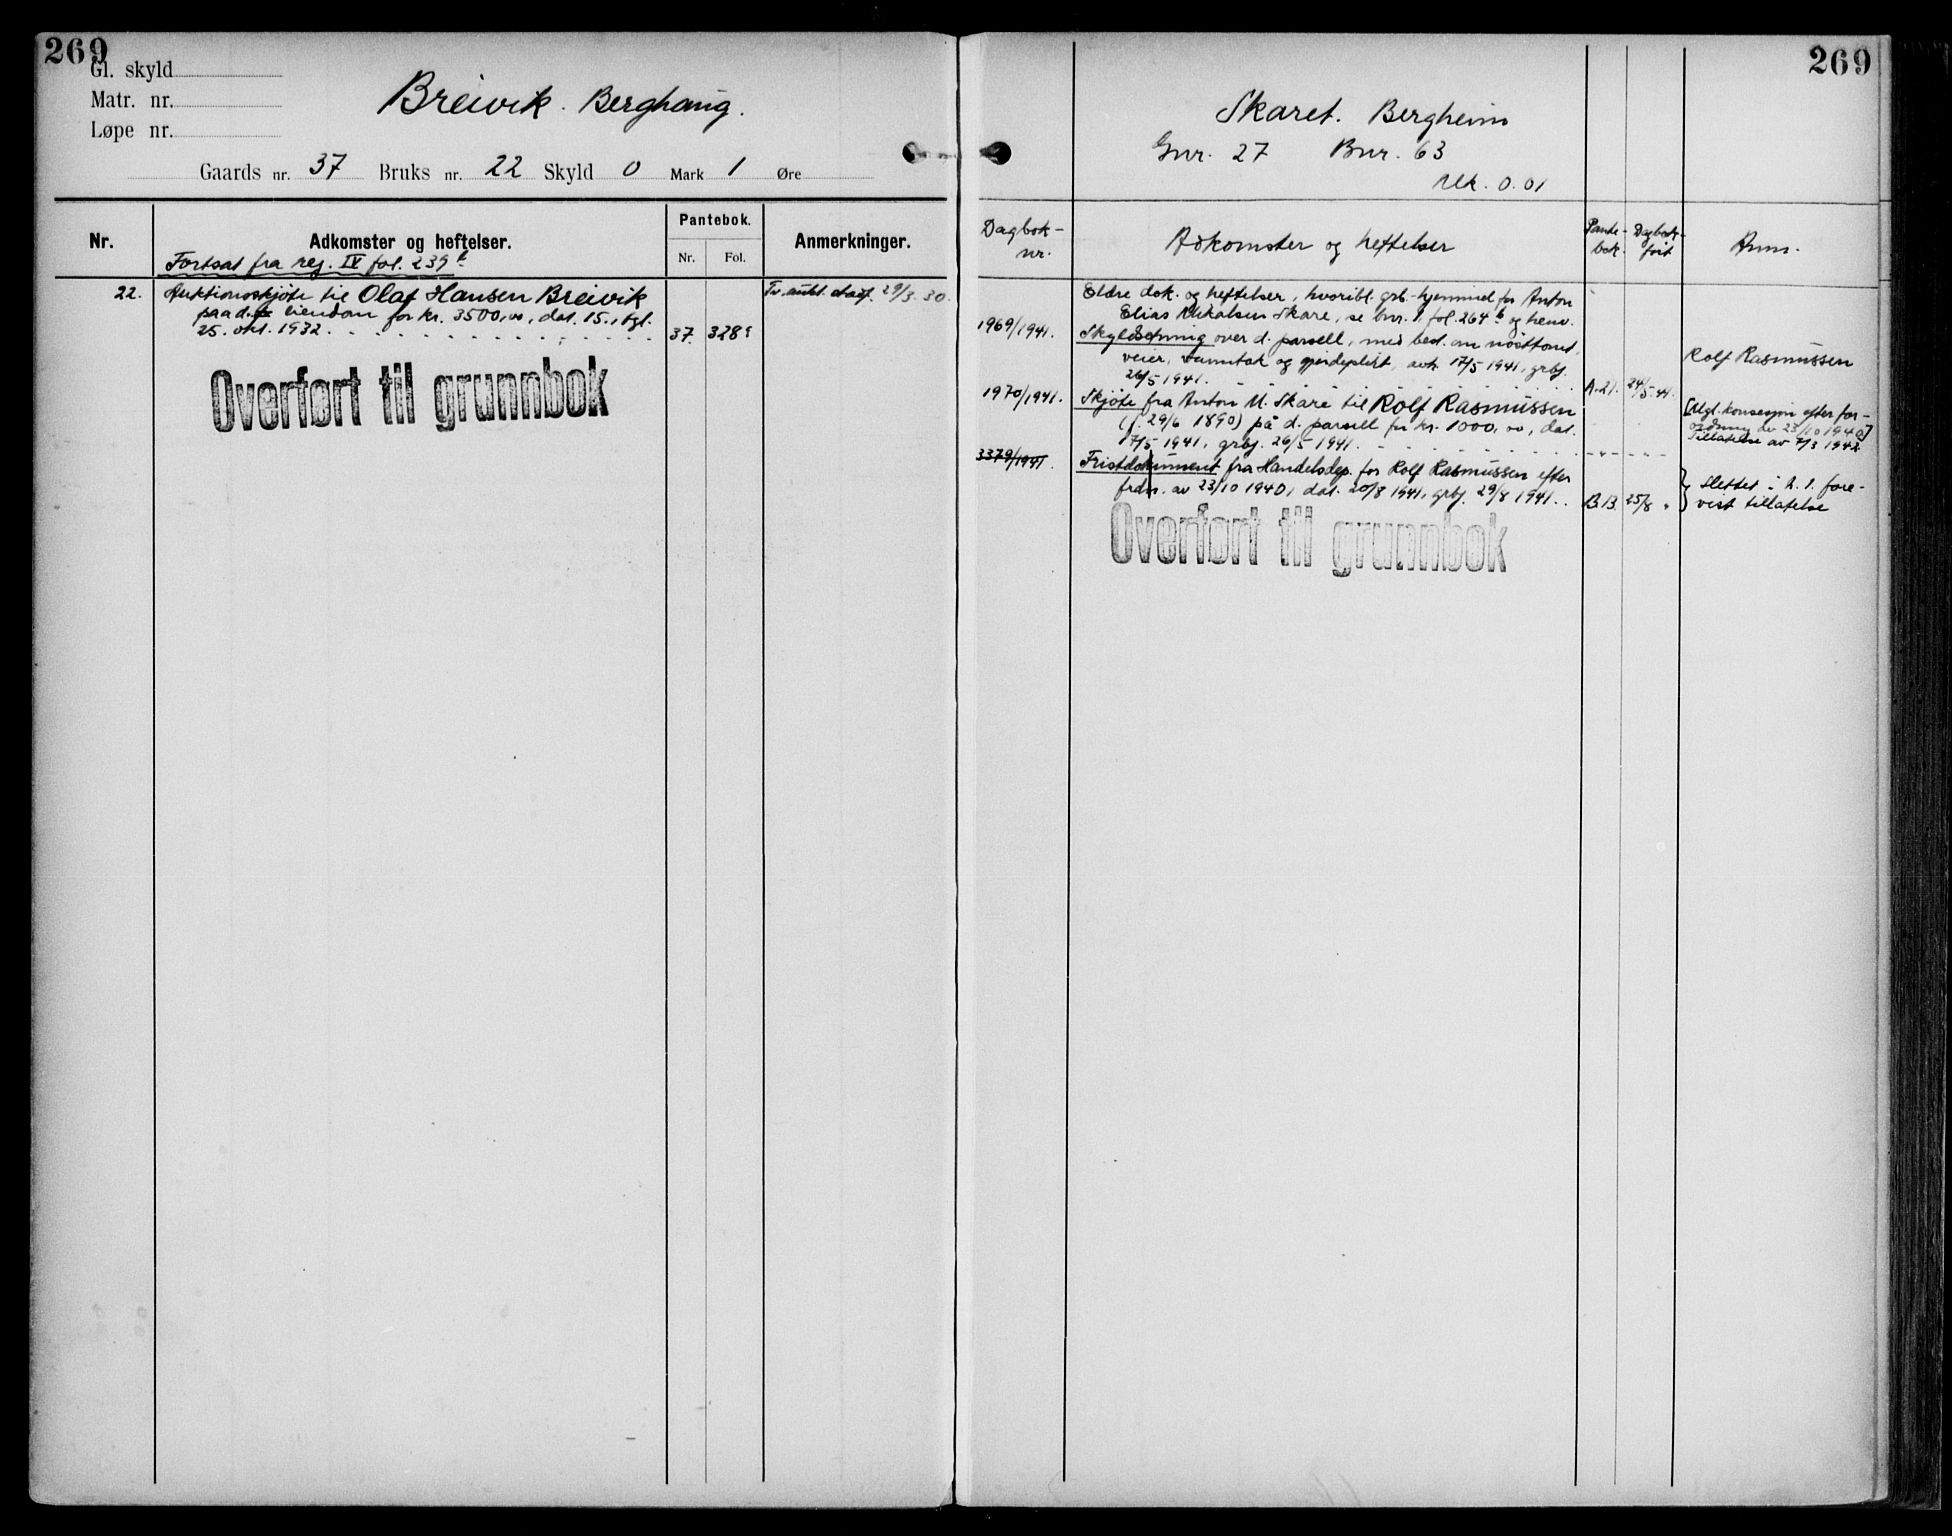 269
Gl. skyld
Matr. nr.
Løpe nr.
Breivik. Berghaug.
Gaards nr. 37 Bruks nr. 22 Skyld 0 Mark 1 Øre
Nr. Adkomster og heftelser. Pantebok. Nr. Fol. Anmerkninger.
Fortsat fra reg. IV fol. 239 b
22. Auktionsskjøte til Olaf Hansen Breivik Tv. aukt. 29/3.30.
paa d. eiendom for kr. 3500,00, dat. 15., tgl.
25. okt. 1932. 37. 328
Overført til grunnbok
269
Skaret. Bergheim
Gnr. 27 Bnr. 63
Mk. 0.01
Dagbok-nr. Adkomster og heftelser Pante-bok. Dagbok-ført Anm.
Eldre dok. og heftelser, hvoribl. grb.-hjemmel for Anton
Elias Mikalsen Skare, se bnr. 1 fol. 264 b og henv.
1969/1941. Skyldsetning over d. parsell, med best. om nausttomt,
veier, vanntak og gjerdeplikt, avh. 17/5 1941, grbf. Rolf Rasmussen
26/5 1941. A.21. 24/5.41.
1970/1941. Skjøte fra Anton M. Skare til Rolf Rasmussen
(f. 29/6 1890) på d. parsell for kr. 1000,00, dat. [Mgl. konsesjon efter for-
17/5 1941, grbf. 26/5 1941. ordning av 23/10 1940]
Tillatelse av 7/3 1942
3379/1941. Fristdokument fra Handelsdep. for Rolf Rasmussen efter
frdn. av 23/10 1940, dat. 20/8 1941, grbf. 29/8 1941. B.13. 25/8 " } Slettet i h. t. fore-
vist tillatelse
Overført til grunnbok